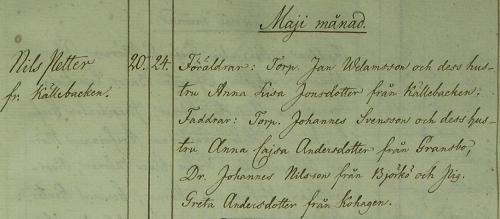 Maji månad.
Nils Petter
fr. Källebacken.
20. 24.
Föräldrar: Torp. Jan Welamsson och dess hus-
tru Anna Lisa Jonsdotter från Källebacken;
Faddrar: Torp. Johannes Svensson och dess hus-
tru Anna Cajsa Andersdotter från Gransbo,
Dr. Johannes Nilsson från Björkö och Pig.
Greta Andersdotter från Kohagen.